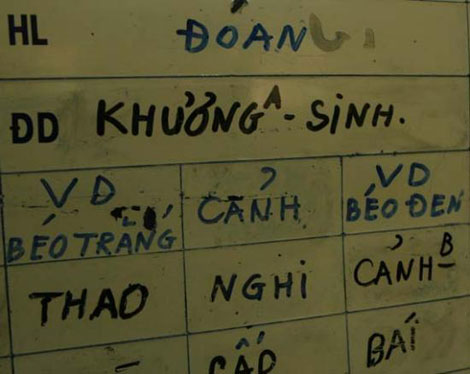 HL ĐOÁN
ĐD KHƯƠNG A - SINH.
VD BÉO TRẮNG
CẢNH
VD BÉO ĐEN
THAO NGHI CẢNH B
CẤP BÁI